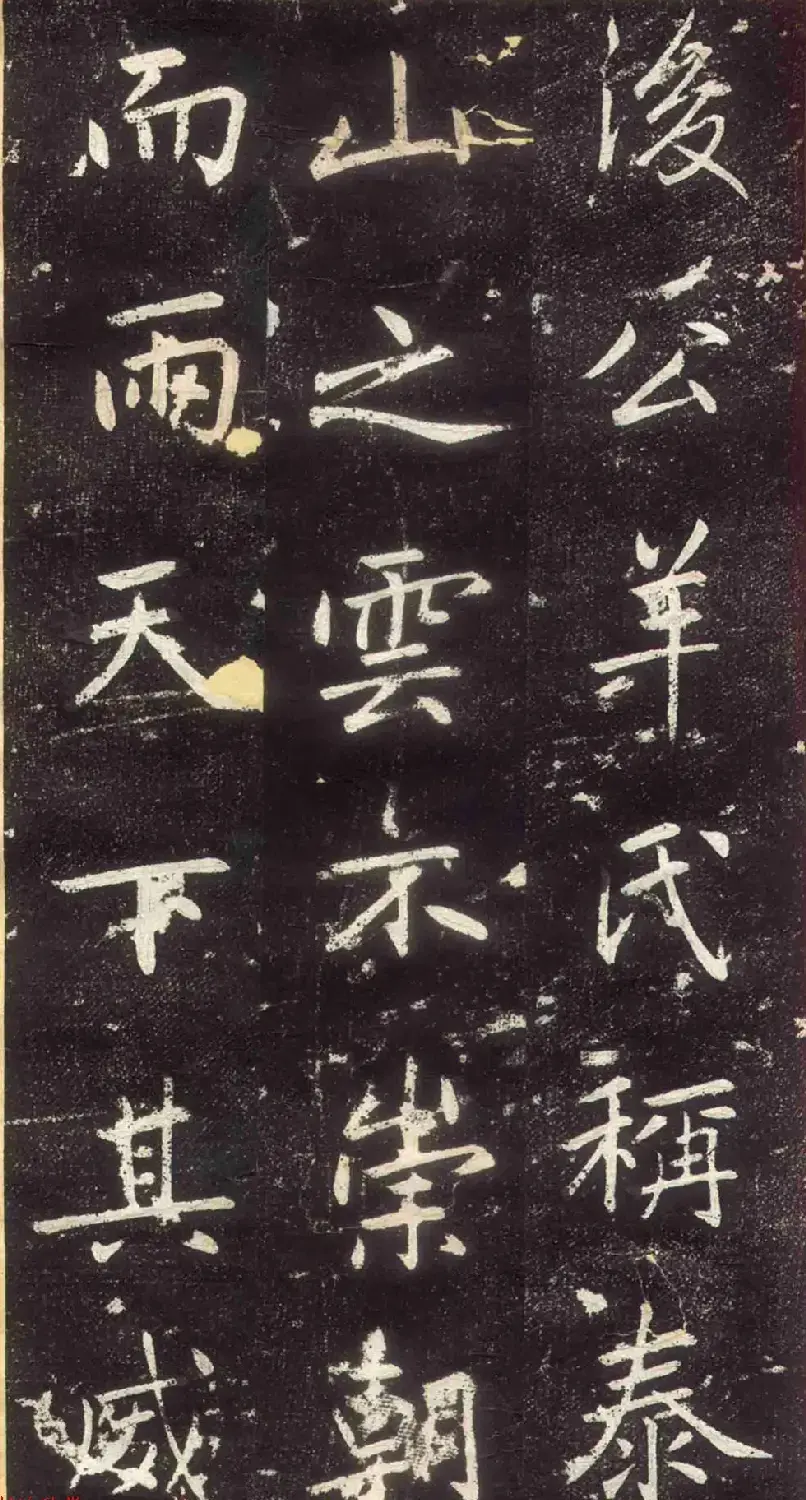 後公羊氏稱泰
山之雲不崇朝
而雨天下其威